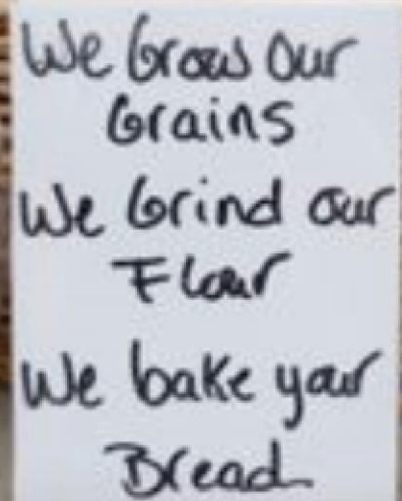 We Grow Our
Grains
We Grind our
Flour
We bake your
Bread